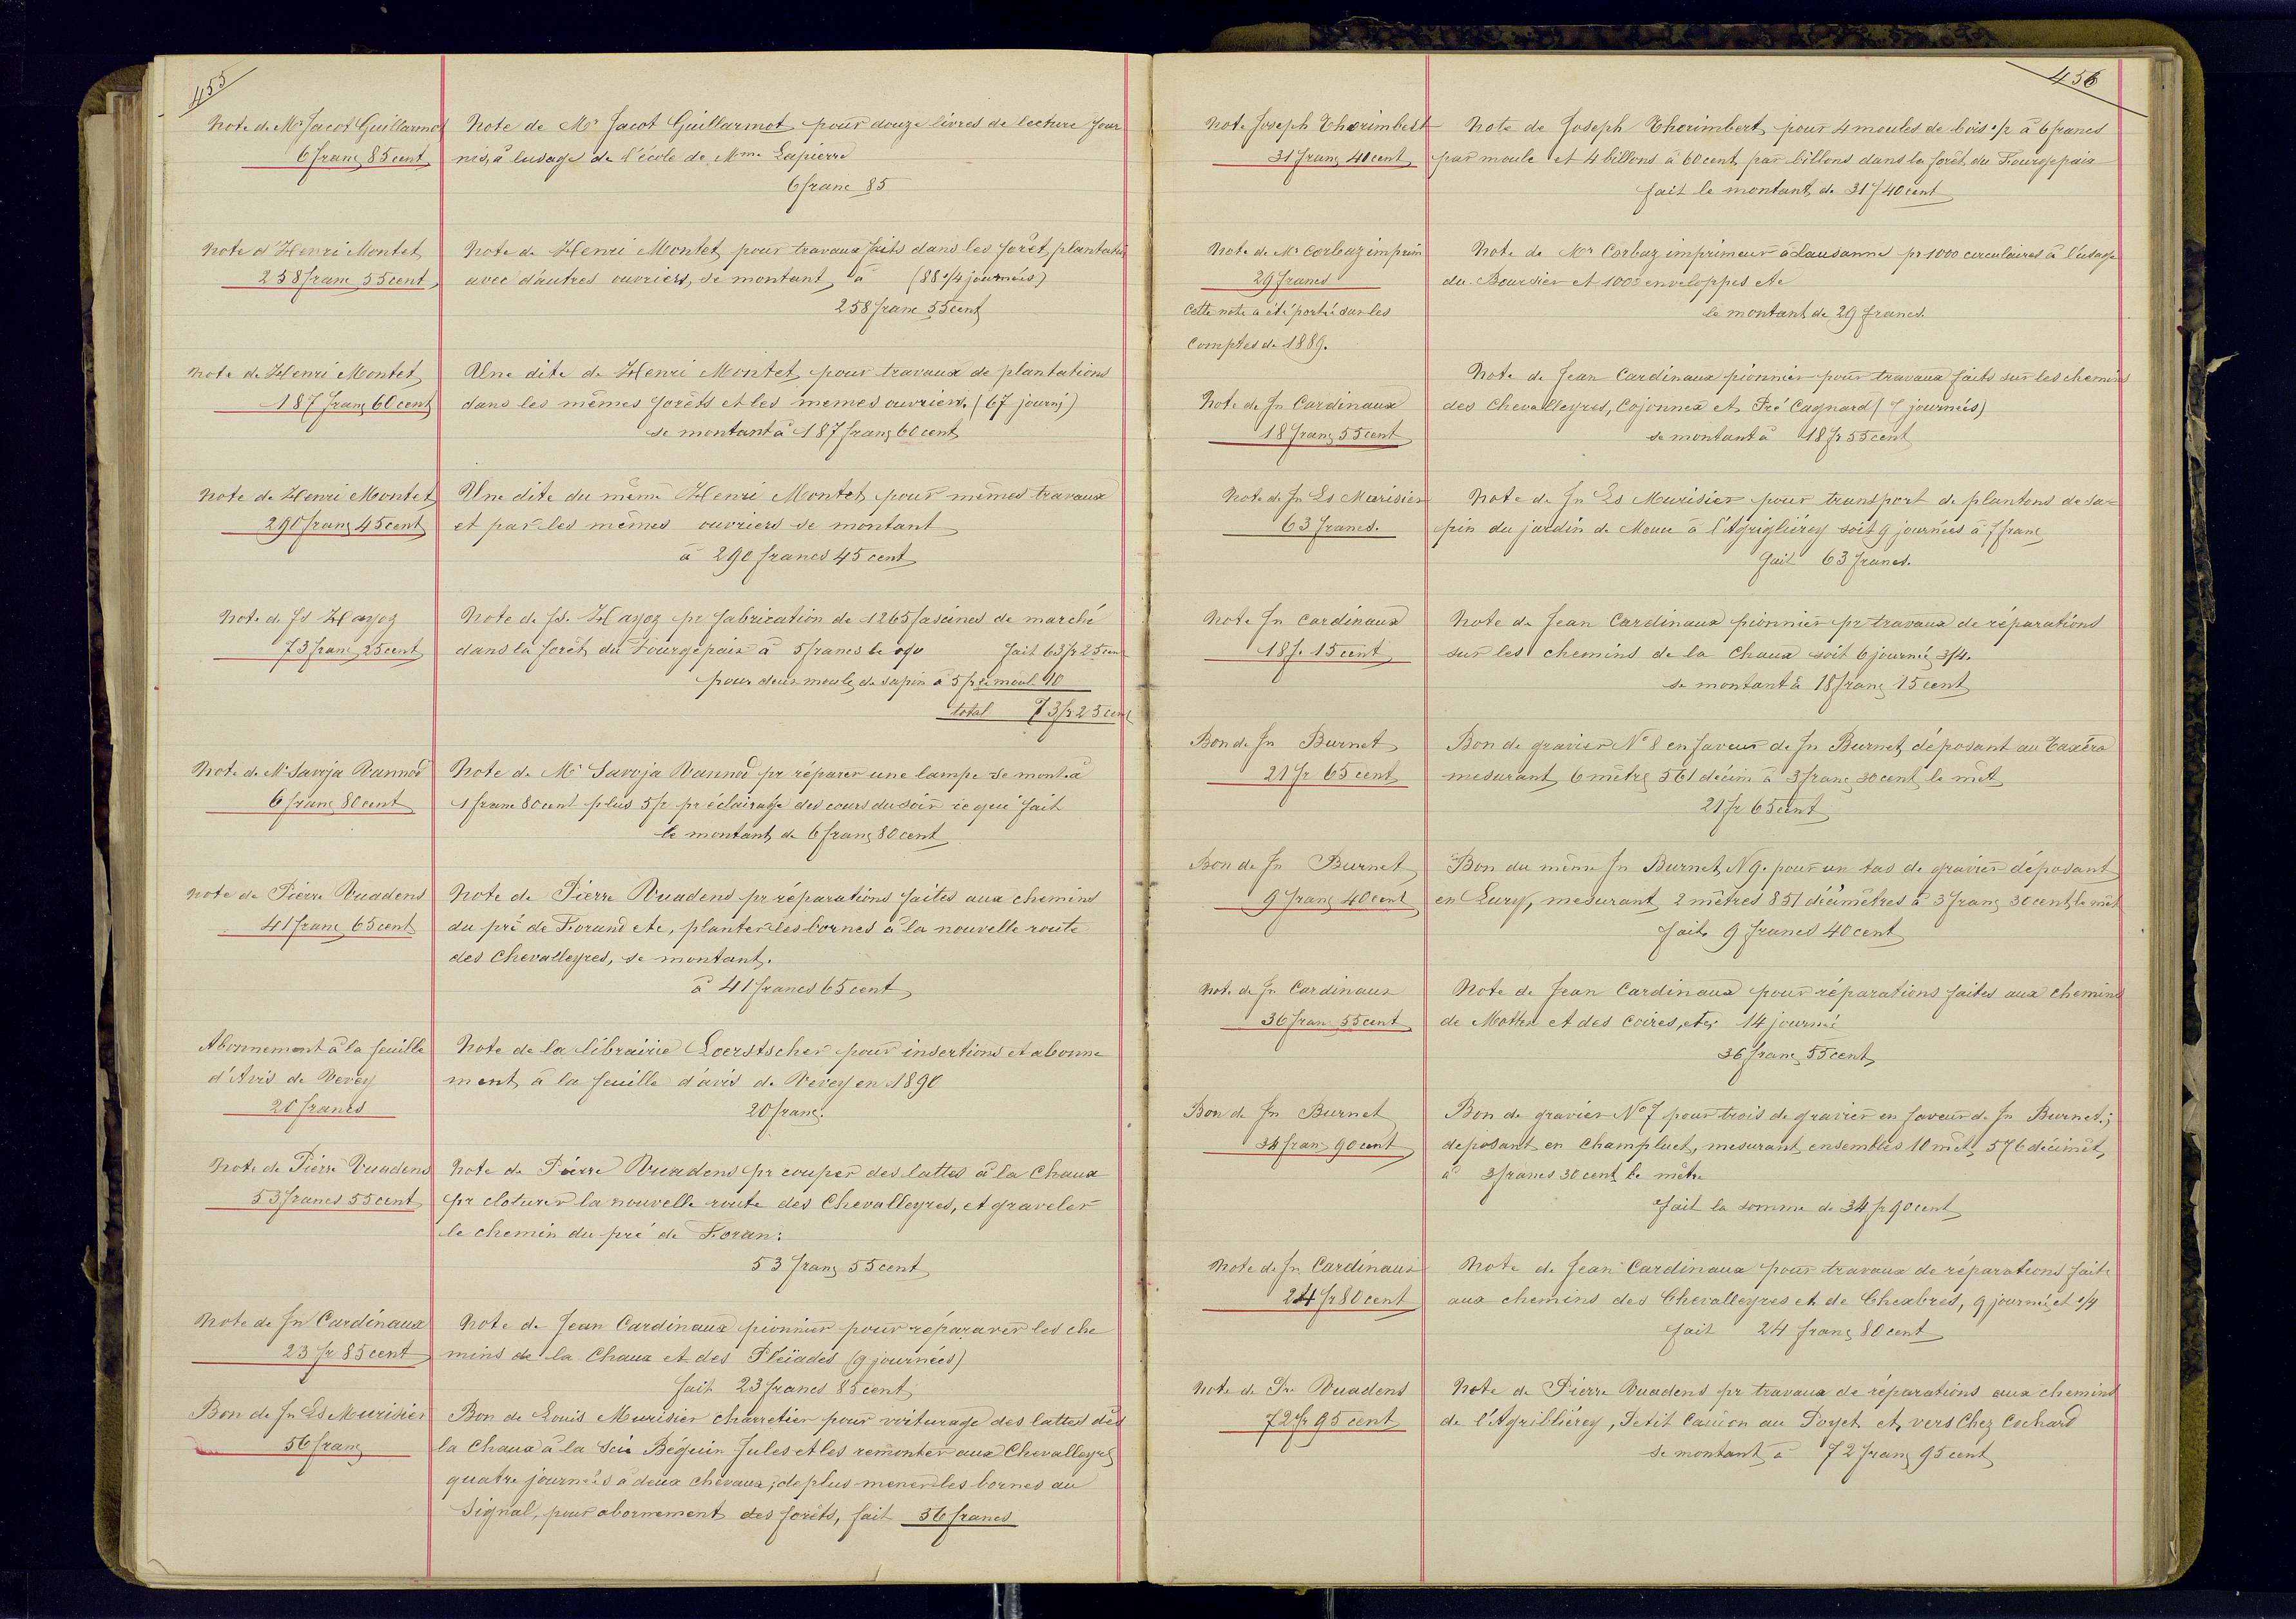 455
Note de Mr Jacot Guillarmot
6 franc 85 cent
Note de Mr Jacot Guillarmot pour douze livres de lecture four
nis, à lusage de l'école de Mme Lapierre
6 franc 85
Note d'Henri Montet
258 franc 55 cent
Note de Henri Montet pour travaux faits dans les forêt, plantation
avec d'autres ouvriers, se montant à (88 1/4 journées)
258 franc 55 cent
Note de Henri Montet
187 franc 60 cent
Une dite de Henri Montet pour travaux de plantations
dans les mêmes forêts et les memes ouvriers. (67 journé)
se montant à 187 franc 60 cent
Note de Henri Montet
290 franc 45 cent
Une dite du même Henri Montet pour mêmes travaux
et par les mêmes ouvriers se montant
à 290 francs 45 cent
Note de Fs Hayoz
73 franc 25 cent
Note de Fs. Hayoz pr fabrication de 1265 fascines de marché
dans la forêt du Fourgepaix à 5 francs le % fait 63 fr 25 cent
pour deux moule de sapin à 5 fr le moul 10
total 73 fr 25 cent
Note de Mr Savoja Vannod
6 franc 80 cent
Note de Mr Savoja Vannod pr réparer une lampe se mont. à
1 franc 80 cent plus 5 fr pr éclairage des cours du soir ce qui fait
le montant de 6 franc 80 cent
Note de Pierre Vuadens
41 franc 65 cent
Note de Pierre Vuadens pr réparations faites aux chemins
du pré de Forand etc, planter les bornes à la nouvelle route
des Chevalleyres, se montant.
à 41 francs 65 cent
Abonnement à la feuille
d'Avis de Vevey
20 francs
Note de la librairie Loertscher pour insertions et abonne
ment à la feuille d'avis de Vevey en 1890
20 franc.
Note de Pierre Vuadens
53 francs 55 cent
Note de Pierre Vuadens pr couper des lattes à la Chaux
pr cloturer la nouvelle route des Chevalleyres, et graveler
le chemin du pré de Foran:
53 franc 55 cent
Note de Jn Cardinaux
23 fr 85 cent
Note de Jean Cardinaux pionnier pour répararer les che
mins de la Chaux et des Pléïades (9 journées)
fait 23 francs 85 cent
Bon de Jn Ls Murisier
56 franc
Bon de Louis Murisier charretier pour voiturage des lattes dès
la Chaux à la Scie Béguin Jules et les remonter aux Chevalleyres
quatre journées à deux chevaux; de plus mener les bornes au
Signal, pour abornement des forêts, fait 56 francs
456
Note Joseph Thorimbert
31 franc 40 cent
Note de Joseph Thorimbert pour 4 moules de bois 1/2 à 6 francs
par moule et 4 billons à 60 cent par billons dans la forêt du Fourgepaix
fait le montant de 31 f 40 cent
Note de Mr Corbaz imprim
29 francs
Cette note à été portée sur les
Comptes de 1889.
Note de Mr Corbaz imprimeur à Lausanne pr 1000 circulaires à l'usage
du Boursier et 1000 enveloppes etc
le montant de 29 francs.
Note de Jn Cardinaux
18 franc 55 cent
Note de Jean Cardinaux pionnier pour travaux faits sur les chemins
des Chevalleyres, Cojonnex et Pré Cagnard (7 journées)
se montant à 18 fr 55 cent
Note de Jn Ls Murisier
63 francs.
Note de Jn Ls Murisier pour transport de plantons de sa-
pin du jardin de Moue à l'Agrigliérey soit 9 journées à 7 franc
fait 63 francs.
Note Jn Cardinaux
18 f. 15 cent
Note de Jean Cardinaux pionnier pr travaux de réparations
sur les chemins de la Chaux soit 6 journée 3/4.
se montant à 18 franc 15 cent
Bon de Jn Burnet
21 fr 65 cent
Bon de gravier No 8 en faveur de Jn Burnet, déposant au Taxéra
mesurant 6 mètre 561 décim à 3 franc 30 cent le mèt
21 fr 65 cent
Bon de Jn Burnet
9 franc 40 cent
Bon du même Jn Burnet, N 9. pour un tas de gravier déposant
en Lury, mesurant 2 mètres 851 décimètres à 3 franc 30 cent, le mèt
fait. 9 francs 40 cent
Note de Jn Cardinaux
36 fran 55 cent
Note de Jean Cardinaux pour réparations faites aux chemins
de Mottex et des Coires, etc; 14 journée
36 franc 55 cent
Bon de Jn Burnet
34 franc 90 cent
Bon de gravier No 7 pour trois de gravier en faveur de Jn Burnet;
deposant en Champluet, mesurant ensembles 10 mèt, 576 décimèt,
à 3 francs 30 cent le mètre
fait la somme de 34 fr 90 cent
Note de Jn Cardinaux
24 fr 80 cent
Note de Jean Cardinaux pour travaux de réparations faits
aux chemins des Chevalleyres et de Chexbres, 9 journée et 1/4
fait 24 franc 80 cent
Note de Pre Vuadens
72 fr 95 cent
Note de Pierre Vuadens pr travaux de réparations aux chemins
de l'Agribliérey, Petit Caucon au Poyet et vers Chez Cochard
se montant à 72 franc 95 cent